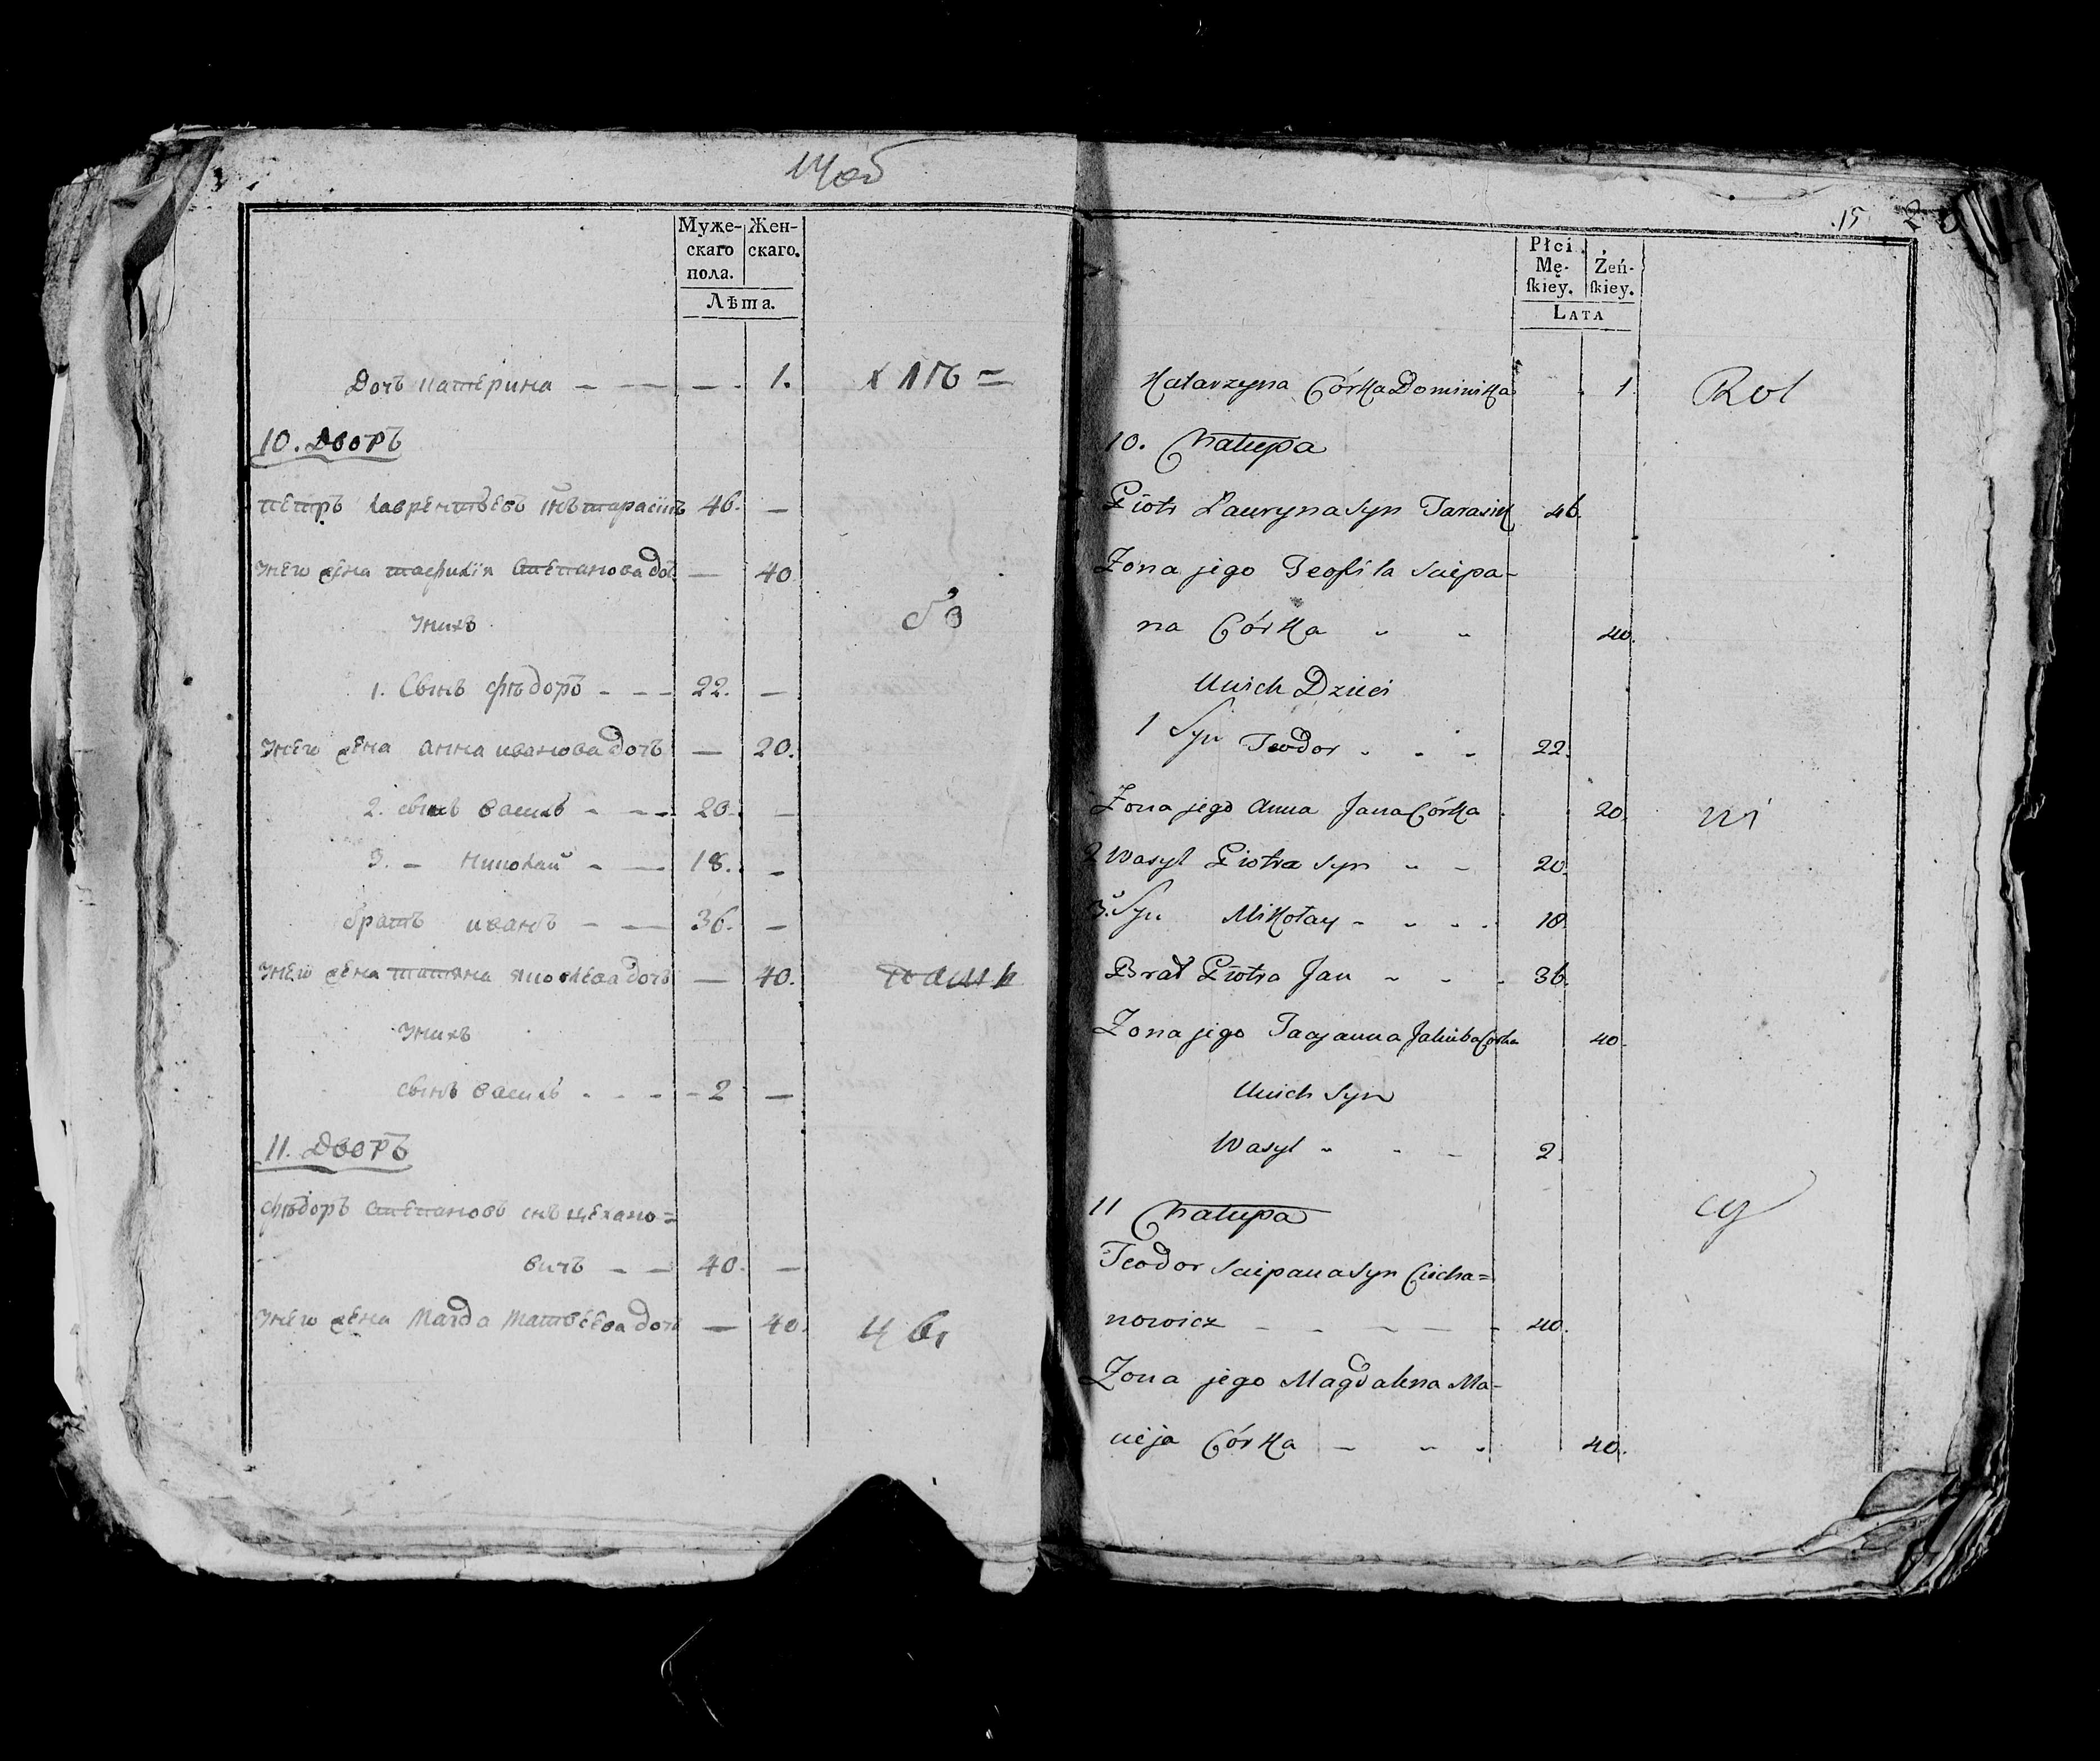 Муже-
скаго
пола.
Жен-
скаго.
Лѣта.
Дочь Катерина — — — — 1.
10. Дворъ
Петръ Лаврентьевъ снъ Тарасикъ 46. —
У него жена Тафилія Степанова дочь — 40
У нихъ
1. Сынъ Фѣдоръ — — — 22. —
У него жена Анна Иванова дочь — 20.
2. сынъ Василь — — — 20. —
3. — Николай — — 18. —
братъ Иванъ — — 36. —
У него жена Татяна Яковлева дочь — 40.
У нихъ
сынъ Василь - - - - 2 —
11. Дворъ
Фѣдоръ Степановъ снъ Цехано=
вичъ — — 40. —
У него жена Магда Матвѣева дочь — 40.
15
Płci
Mę-
ſkiey.
Żeń-
ſkiey.
LATA
Katarzyna Córka Dominika 1
10. Chałupa
Piotr Lauryna Syn Tarasik 46.
Zona jego Teofila Sciepa-
na Córka 40.
U nich Dzieci
1 Syn Teodor 22.
Zona jego Anna Jana Córka 20.
2 Wasyl Piotra Syn 20.
3. Syn Mikołay 18.
Brat Piotra Jan 36.
Zona jego Tacjanna Jakuba Córka 40.
U nich Syn
Wasyl 2.
11 Chałupa
Teodor Sciepana Syn Ciecha=
nowicz 40.
Zona jego Magdalena Ma-
cieja Córka 40.